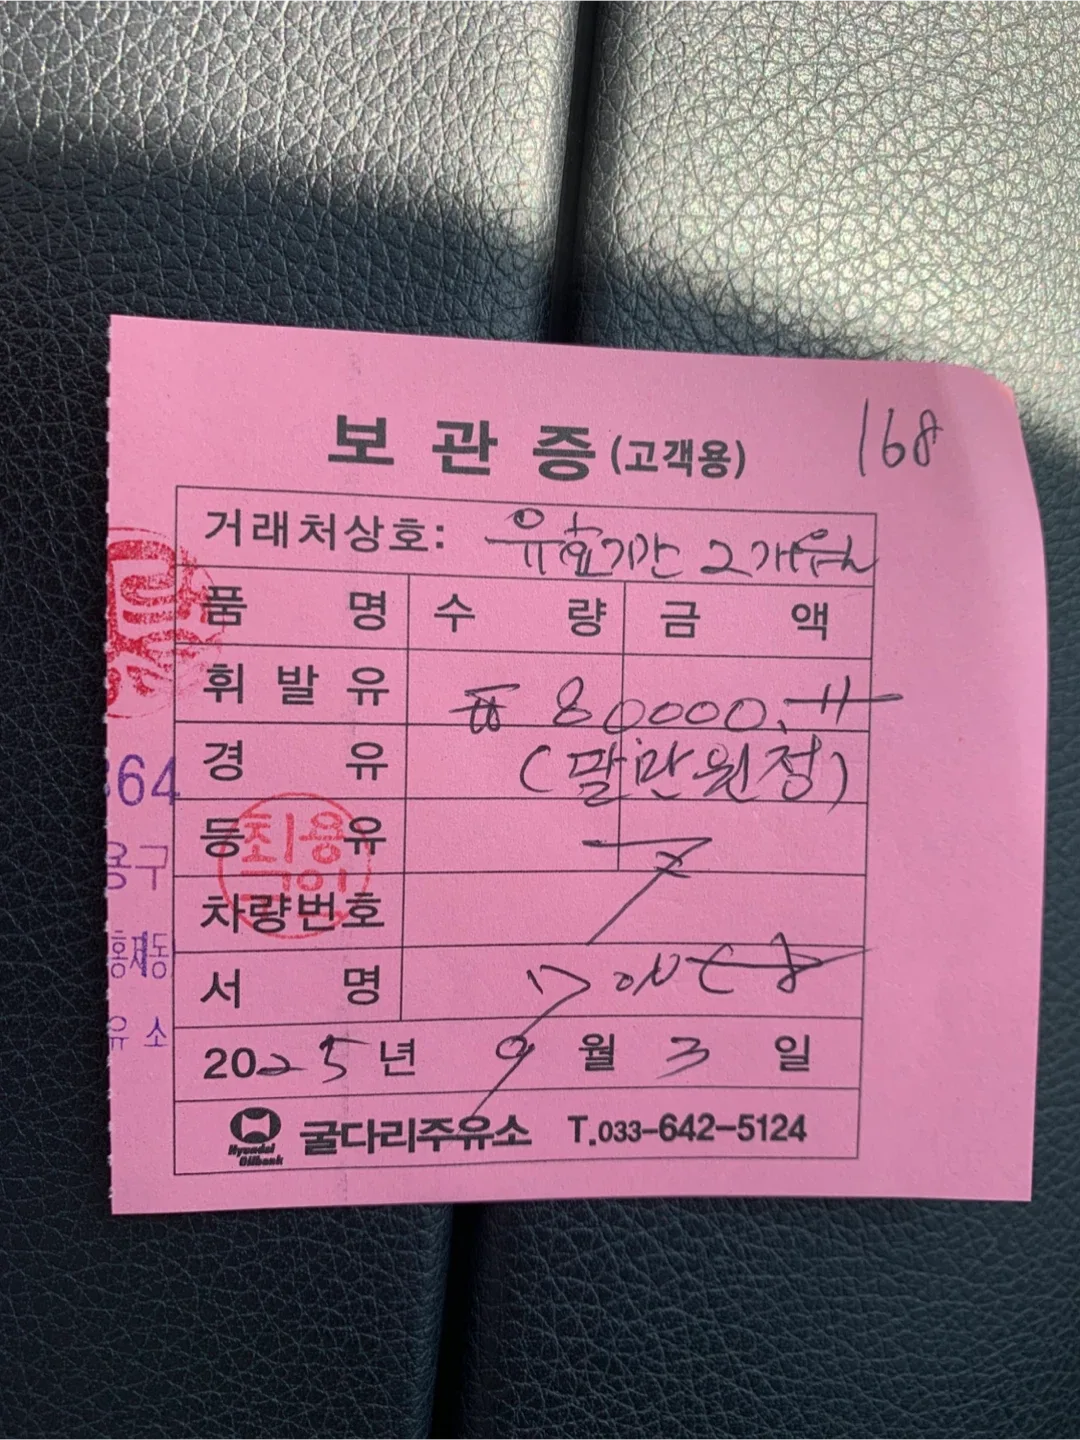 168
보관증(고객용)
거래처상호: 유효기간 2개월
품명 수량 금액
휘발유 ₩80000.
경유 (팔만원정)
등유
최용
차량번호
서명
2025년 9월 3일
Hyundai Oilbank 굴다리주유소 T.033-642-5124
64
용구
홍제동
유소